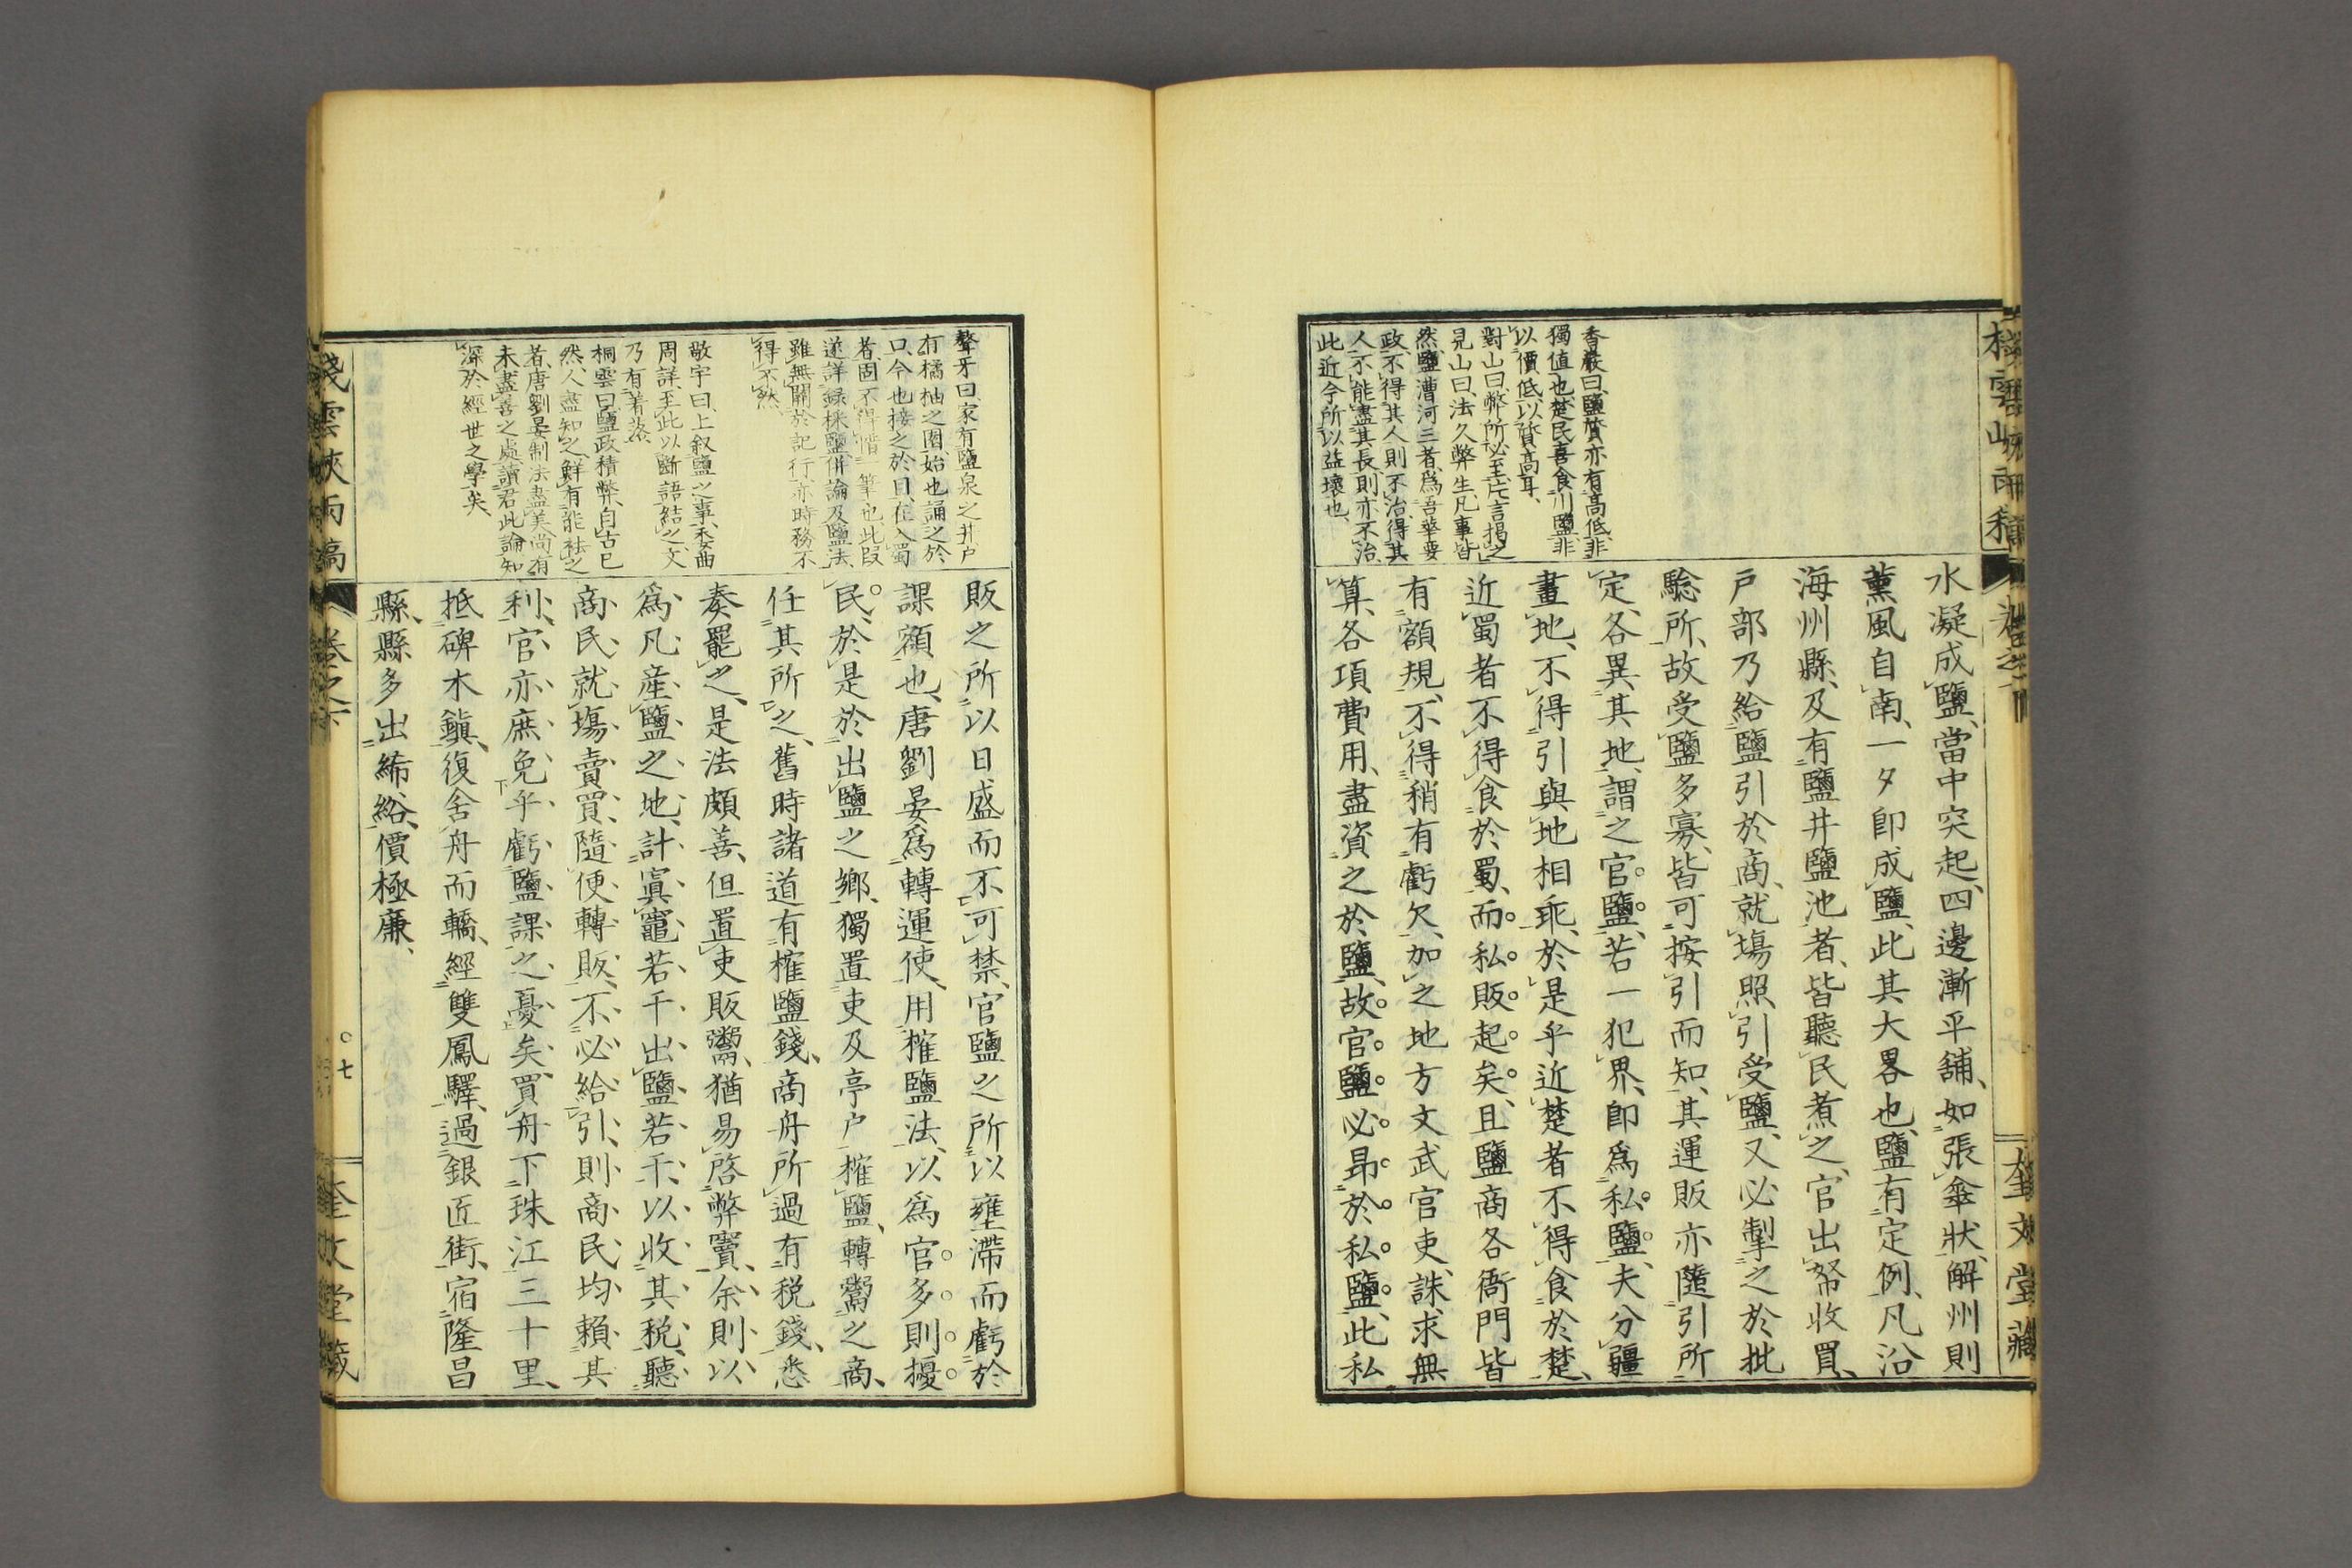 水凝成鹽、當中突起、四邊漸平鋪、如張傘狀、解州則
薰風自南、一夕卽成鹽、此其大畧也、鹽有定例、凡沿
海州縣、及有鹽井鹽池者、皆聽民煮之、官出帑收買、
戶部乃給鹽引於商、就塲照引受鹽、又必掣之於批
驗所、故受鹽多寡、皆可按引而知、其運販亦隨引所
定、各異其地、謂之官鹽、若一犯界、卽爲私鹽、夫分疆
畫地、不得引與地相乖、於是乎近楚者不得食於楚、
近蜀者不得食於蜀、而私販起矣、且鹽商各衙門皆
有額規、不得稍有虧欠、加之地方文武官吏、誅求無
算、各項費用、盡資之於鹽、故官鹽必昂於私鹽、此私
香巖曰、鹽質亦有高低、非
獨値也、楚民喜食川鹽、非
以價低、以質高耳、
對山曰、弊所必至、片言揭之
見山曰、法久弊生、凡事皆
然、鹽漕河三者、爲吾華要
政、不得其人則不治、得其
人不能盡其長、則亦不治、
此近今所以益壞也、
販之所以日盛而不可禁、官鹽之所以壅滯而虧於
課額也、唐劉晏爲轉運使、用榷鹽法、以爲官多則擾
民、於是於出鹽之鄉、獨置吏及亭戶榷鹽、轉鬻之商、
任其所之、舊時諸道有榷鹽錢、商舟所過有税錢、悉
奏罷之、是法頗善、但置吏販鬻、猶易啓弊竇、余則以
爲凡產鹽之地、計寘竈若干出鹽若干、以收其税、聽
商民就塲賣買、隨便轉販、不必給引、則商民均賴其
利、官亦庶免乎虧鹽課之憂矣、買舟下珠江三十里、
抵碑木鎭、復舍舟而轎、經雙鳳驛、過銀匠街、宿隆昌
縣、縣多出絺綌、價極廉、
聱牙曰、家有鹽泉之井、戶
有橘柚之園、始也誦之於
口、今也接之於目、在入蜀
者、固不得惜一筆也、此段
遂詳錄採鹽、併論及鹽法、
雖無關於記行、亦時務不
得不然、
敬宇曰、上叙鹽之事、委曲
周詳、至此以斷語結之、文
乃有著落、
桐雲曰、鹽政積弊、自古已
然、人盡知之、鮮有能祛之
者、唐劉晏制法盡美、尚有
未盡善之處、讀君此論、知
深於經世之學矣、
棧雲峽雨稿
卷之下
○七
奎文堂藏